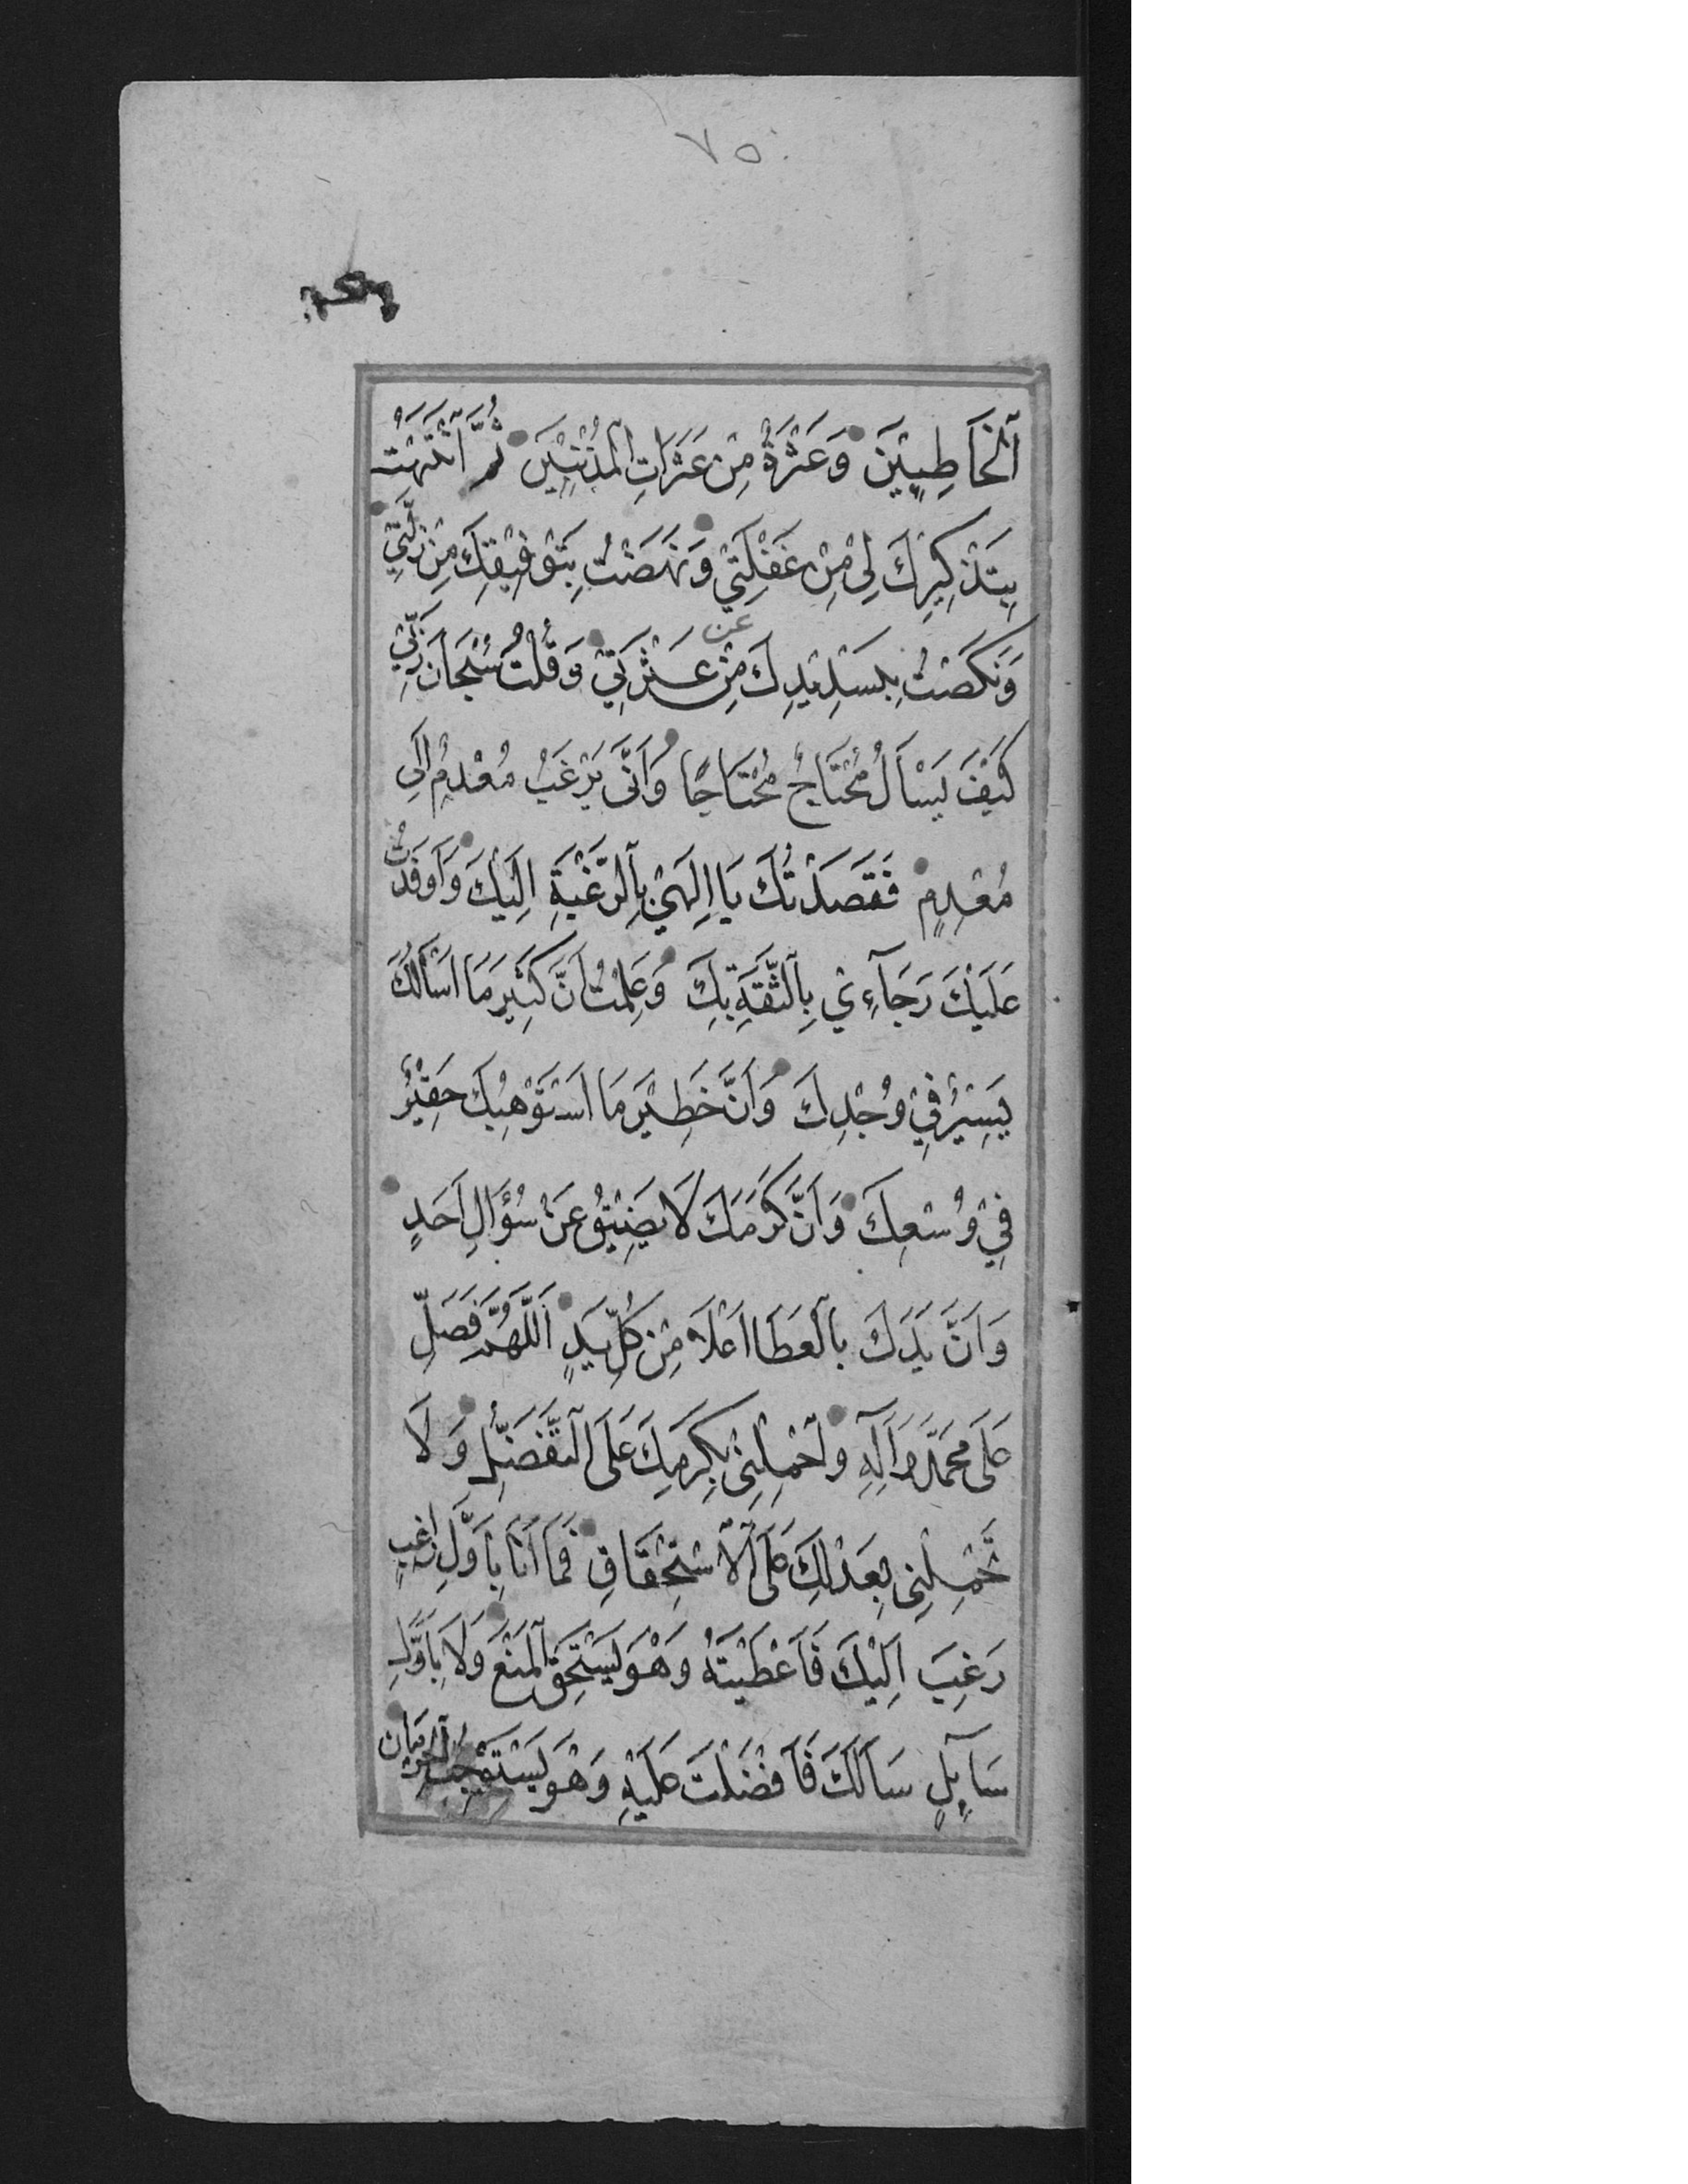 ٧٥
ٱلْخَاطِئِيْنَ وَعَثْرَةٌ مِنْ عَثَرَاتِ ٱلْمُذْنِبِيْنَ ثُمَّ ٱنْتَبَهْتُ
بِتَذْكِيْرِكَ لِيْ مِنْ غَفْلَتِيْ وَنَهَضْتُ بِتَوْفِيْقِكَ مِنْ زَلَّتِيْ
عن
وَنَكَصْتُ بِتَسْدِيْدِكَ مِنْ عَثْرَتِيْ وَقُلْتُ سُبْحَانَ رَبِّيْ
كَيْفَ يَسْأَلُ مُحْتَاجٌ مُحْتَاجًا وَاَنَّى يَرْغَبُ مُعْدِمٌ اِلَى
مُعْدِمٍ فَقَصَدْتُكَ يَا اِلٰهِيْ بِٱلرَّغْبَةِ اِلَيْكَ وَاَوْفَدْتُ
عَلَيْكَ رَجَآءِيْ بِٱلثِّقَةِ بِكَ وَعَلِمْتُ اَنَّ كَثِيْرَ مَا اَسْأَلُكَ
يَسِيْرٌ فِيْ وُجْدِكَ وَاَنَّ خَطِيْرَ مَا اَسْتَوْهِبُكَ حَقِيْرٌ
فِيْ وُسْعِكَ وَاَنَّ كَرَمَكَ لَا يَضِيْقُ عَنْ سُؤَالِ اَحَدٍ
وَاَنَّ يَدَكَ بِٱلْعَطَا اَعْلَا مِنْ كُلِّ يَدٍ اَللّٰهُمَّ فَصَلِّ
عَلَى مُحَمَّدٍ وَاٰلِهِ وَٱحْمِلْنِيْ بِكَرَمِكَ عَلَى ٱلتَّفَضُّلِ وَلَا
تَحْمِلْنِيْ بِعَدْلِكَ عَلَى ٱلْاِسْتِحْقَاقِ فَمَا اَنَا بِاَوَّلِ رَاغِبٍ
رَغِبَ اِلَيْكَ فَاَعْطَيْتَهُ وَهُوَ يَسْتَحِقُّ ٱلْمَنْعَ وَلَا بِاَوَّلِ
سَآئِلٍ سَأَلَكَ فَاَفْضَلْتَ عَلَيْهِ وَهُوَ يَسْتَوْجِبُ ٱلْحِرْمَانَ